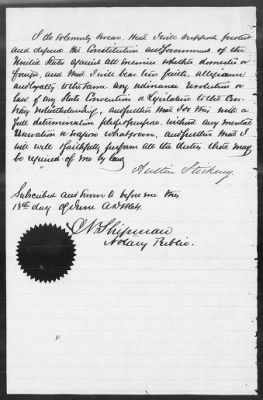 I do solemnly swear, that I will support, protect
and defend the Constitution and Government of the
United States against all enemies whether domestic or
foreign, and that I will bear true faith, allegiance
and loyalty to the same any ordinance resolution or
law of any State Convention or Legislature to the Con-
trary notwithstanding, and further that I do this with a
full determination pledge & purpose, without any mental
reservation or evasion whatsoever, and further that I
will well faithfully perform all the duties that may
be required of me by law
Austin
Subscribed and sworn to before me this
13th day of June A.D. 1864.
C B Shipman
Notary Public.